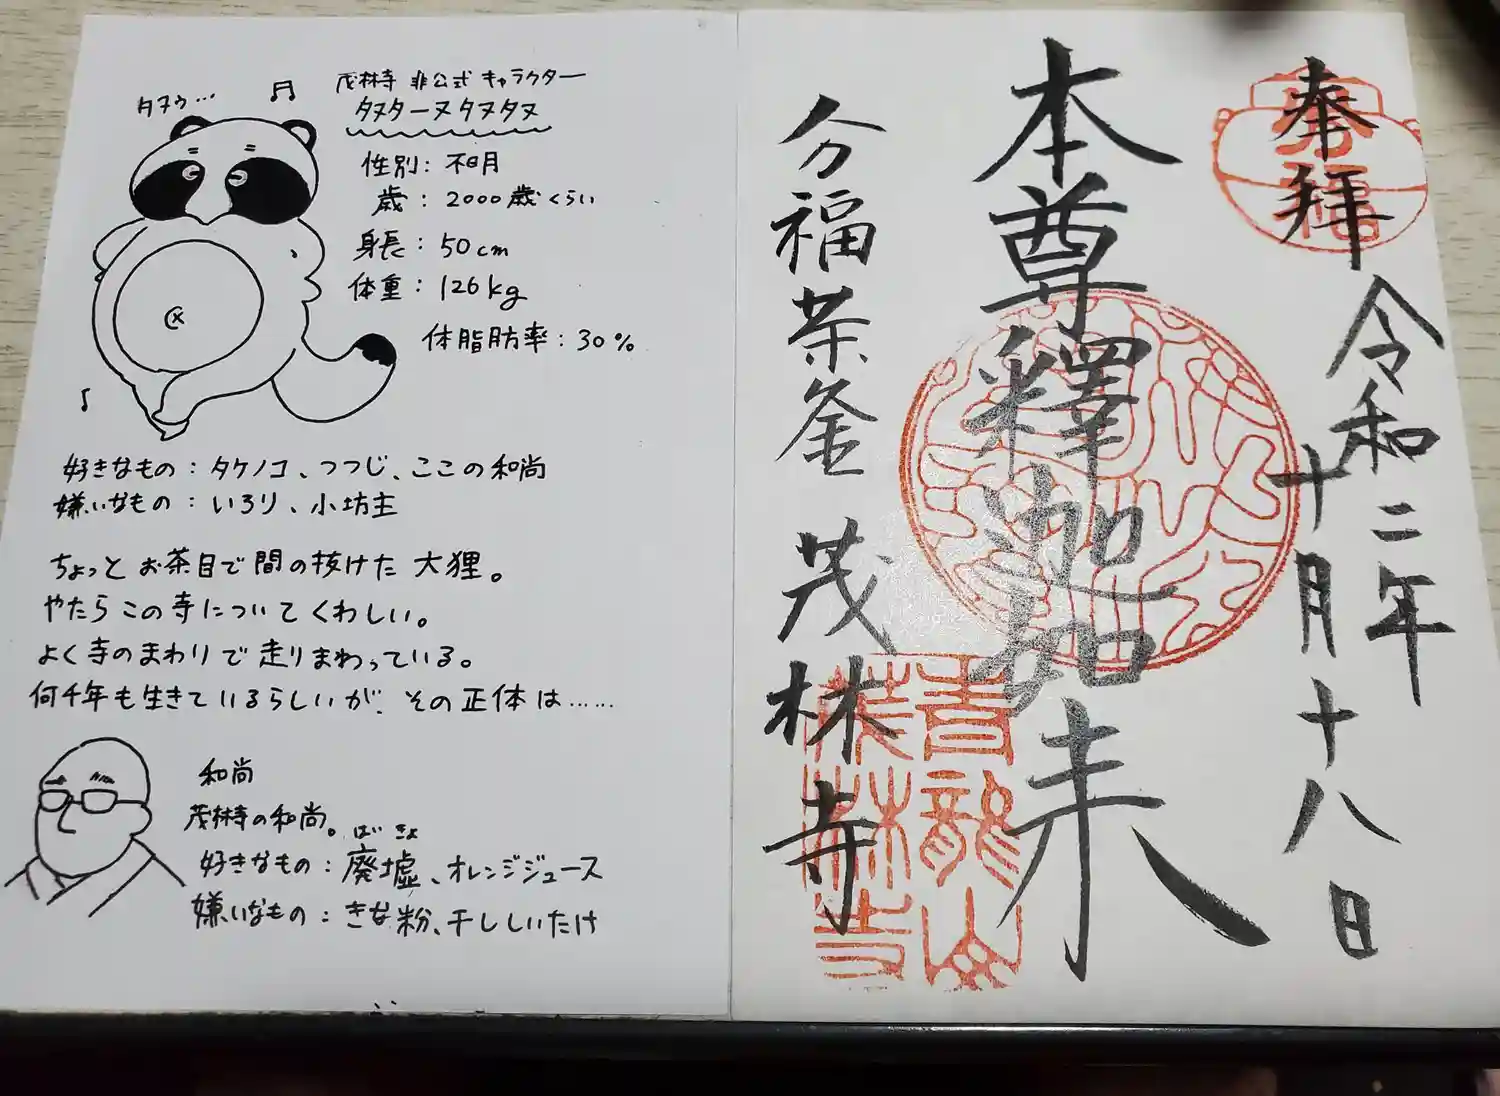 タヌゥ…
茂林寺 非公式 キャラクター
タヌターヌタヌタヌ
性別: 不明
歳: 2000歳くらい
身長: 50cm
体重: 126kg
体脂肪率: 30%
好きなもの: タケノコ、つつじ、ここの和尚
嫌いなもの: いろり、小坊主
ちょっとお茶目で間の抜けた大狸。
やたらこの寺についてくわしい。
よく寺のまわりで走りまわっている。
何千年も生きているらしいが、その正体は……
和尚
茂林寺の和尚。
好きなもの: 廃墟、オレンジジュース
ばい きょ
嫌いなもの: きな粉、干ししいたけ
奉拝
令和二年
十月十八日
本尊釋迦如来
分福茶釜 茂林寺
青龍山
茂林寺